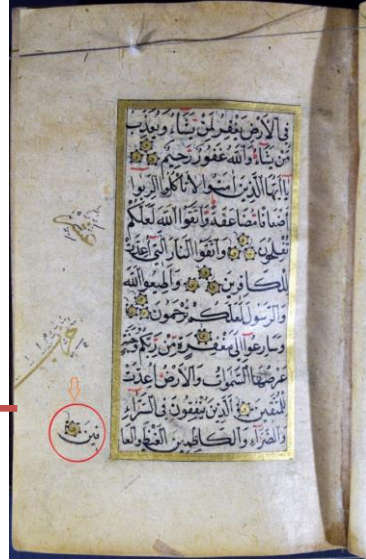 فِي الْأَرْضِ يَغْفِرُ لِمَنْ يَشَاءُ وَيُعَذِّبُ
مَنْ يَشَاءُ وَاللَّهُ غَفُورٌ رَحِيمٌ
يَا أَيُّهَا الَّذِينَ آمَنُوا لَا تَأْكُلُوا الرِّبَوا
أَضْعَافًا مُضَاعَفَةً وَاتَّقُوا اللَّهَ لَعَلَّكُمْ
تُفْلِحُونَ وَاتَّقُوا النَّارَ الَّتِي أُعِدَّتْ
لِلْكَافِرِينَ وَأَطِيعُوا اللَّهَ
وَالرَّسُولَ لَعَلَّكُمْ تُرْحَمُونَ
وَسَارِعُوا إِلَى مَغْفِرَةٍ مِنْ رَبِّكُمْ وَجَنَّةٍ
عَرْضُهَا السَّمَوَاتُ وَالْأَرْضُ أُعِدَّتْ
لِلْمُتَّقِينَ الَّذِينَ يُنْفِقُونَ فِي السَّرَّاءِ
وَالضَّرَّاءِ وَالْكَاظِمِينَ الْغَيْظَ وَالْعَا
فِينَ
حزب